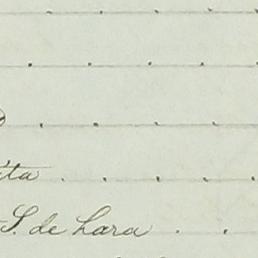 ita . . . . .
S. de Lara . . .